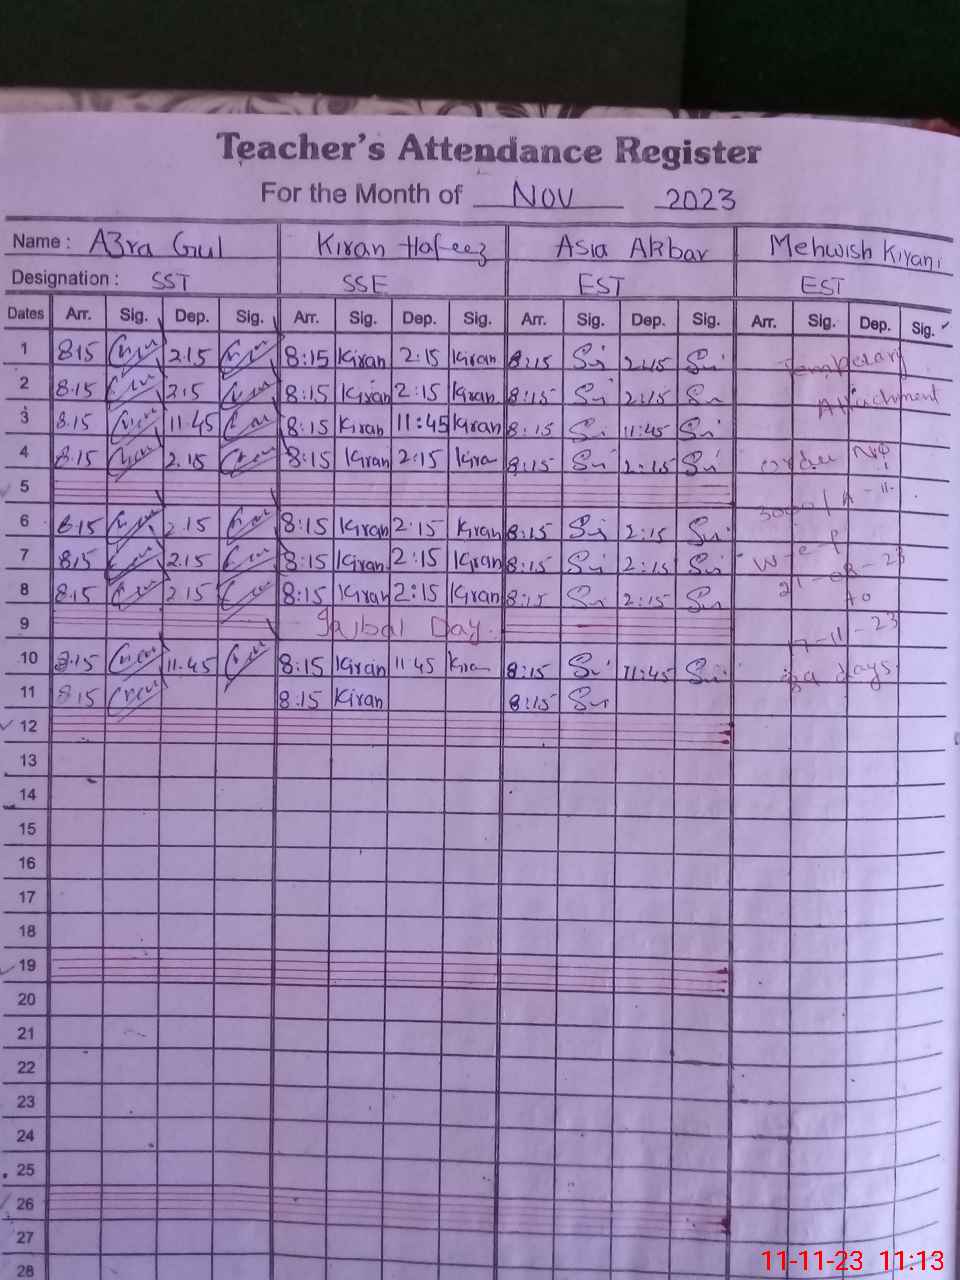 Teacher's Attendance Register
For the Month of Nov 2023
Name : A3ra Gul Kiran Hafeez Asia Akbar Mehwish Kiyani
Designation : SST SSE EST EST
Dates Arr. Sig. Dep. Sig. Arr. Sig. Dep. Sig. Arr. Sig. Dep. Sig. Arr. Sig. Dep. Sig.
1 8.15 2.15 8:15 Kiran 2:15 Kiran 8:15 2:15 Temperary
2 8.15 2.15 8:15 Kiran 2:15 Kiran 8:15 2:15 Attachment
3 8.15 11.45 8:15 Kiran 11:45 Kiran 8:15 11:45
4 8.15 2.15 8:15 Kiran 2:15 Kira 8:15 2:15 order No
5
6 8.15 2.15 8:15 Kiran 2:15 Kiran 8:15 2:15
7 8.15 2.15 8:15 Kiran 2:15 Kiran 8:15 2:15 w-e-f
8 8.15 2.15 8:15 Kiran 2:15 Kiran 8:15 2:15 21-08-23 to
9 Iqbal Day. 17-11-23
10 8.15 11.45 8:15 Kiran 11:45 Kiran 8:15 11:45 days
11 8.15 8:15 Kiran 8:15
12
13
14
15
16
17
18
19
20
21
22
23
24
25
26
27
28
11-11-23 11:13